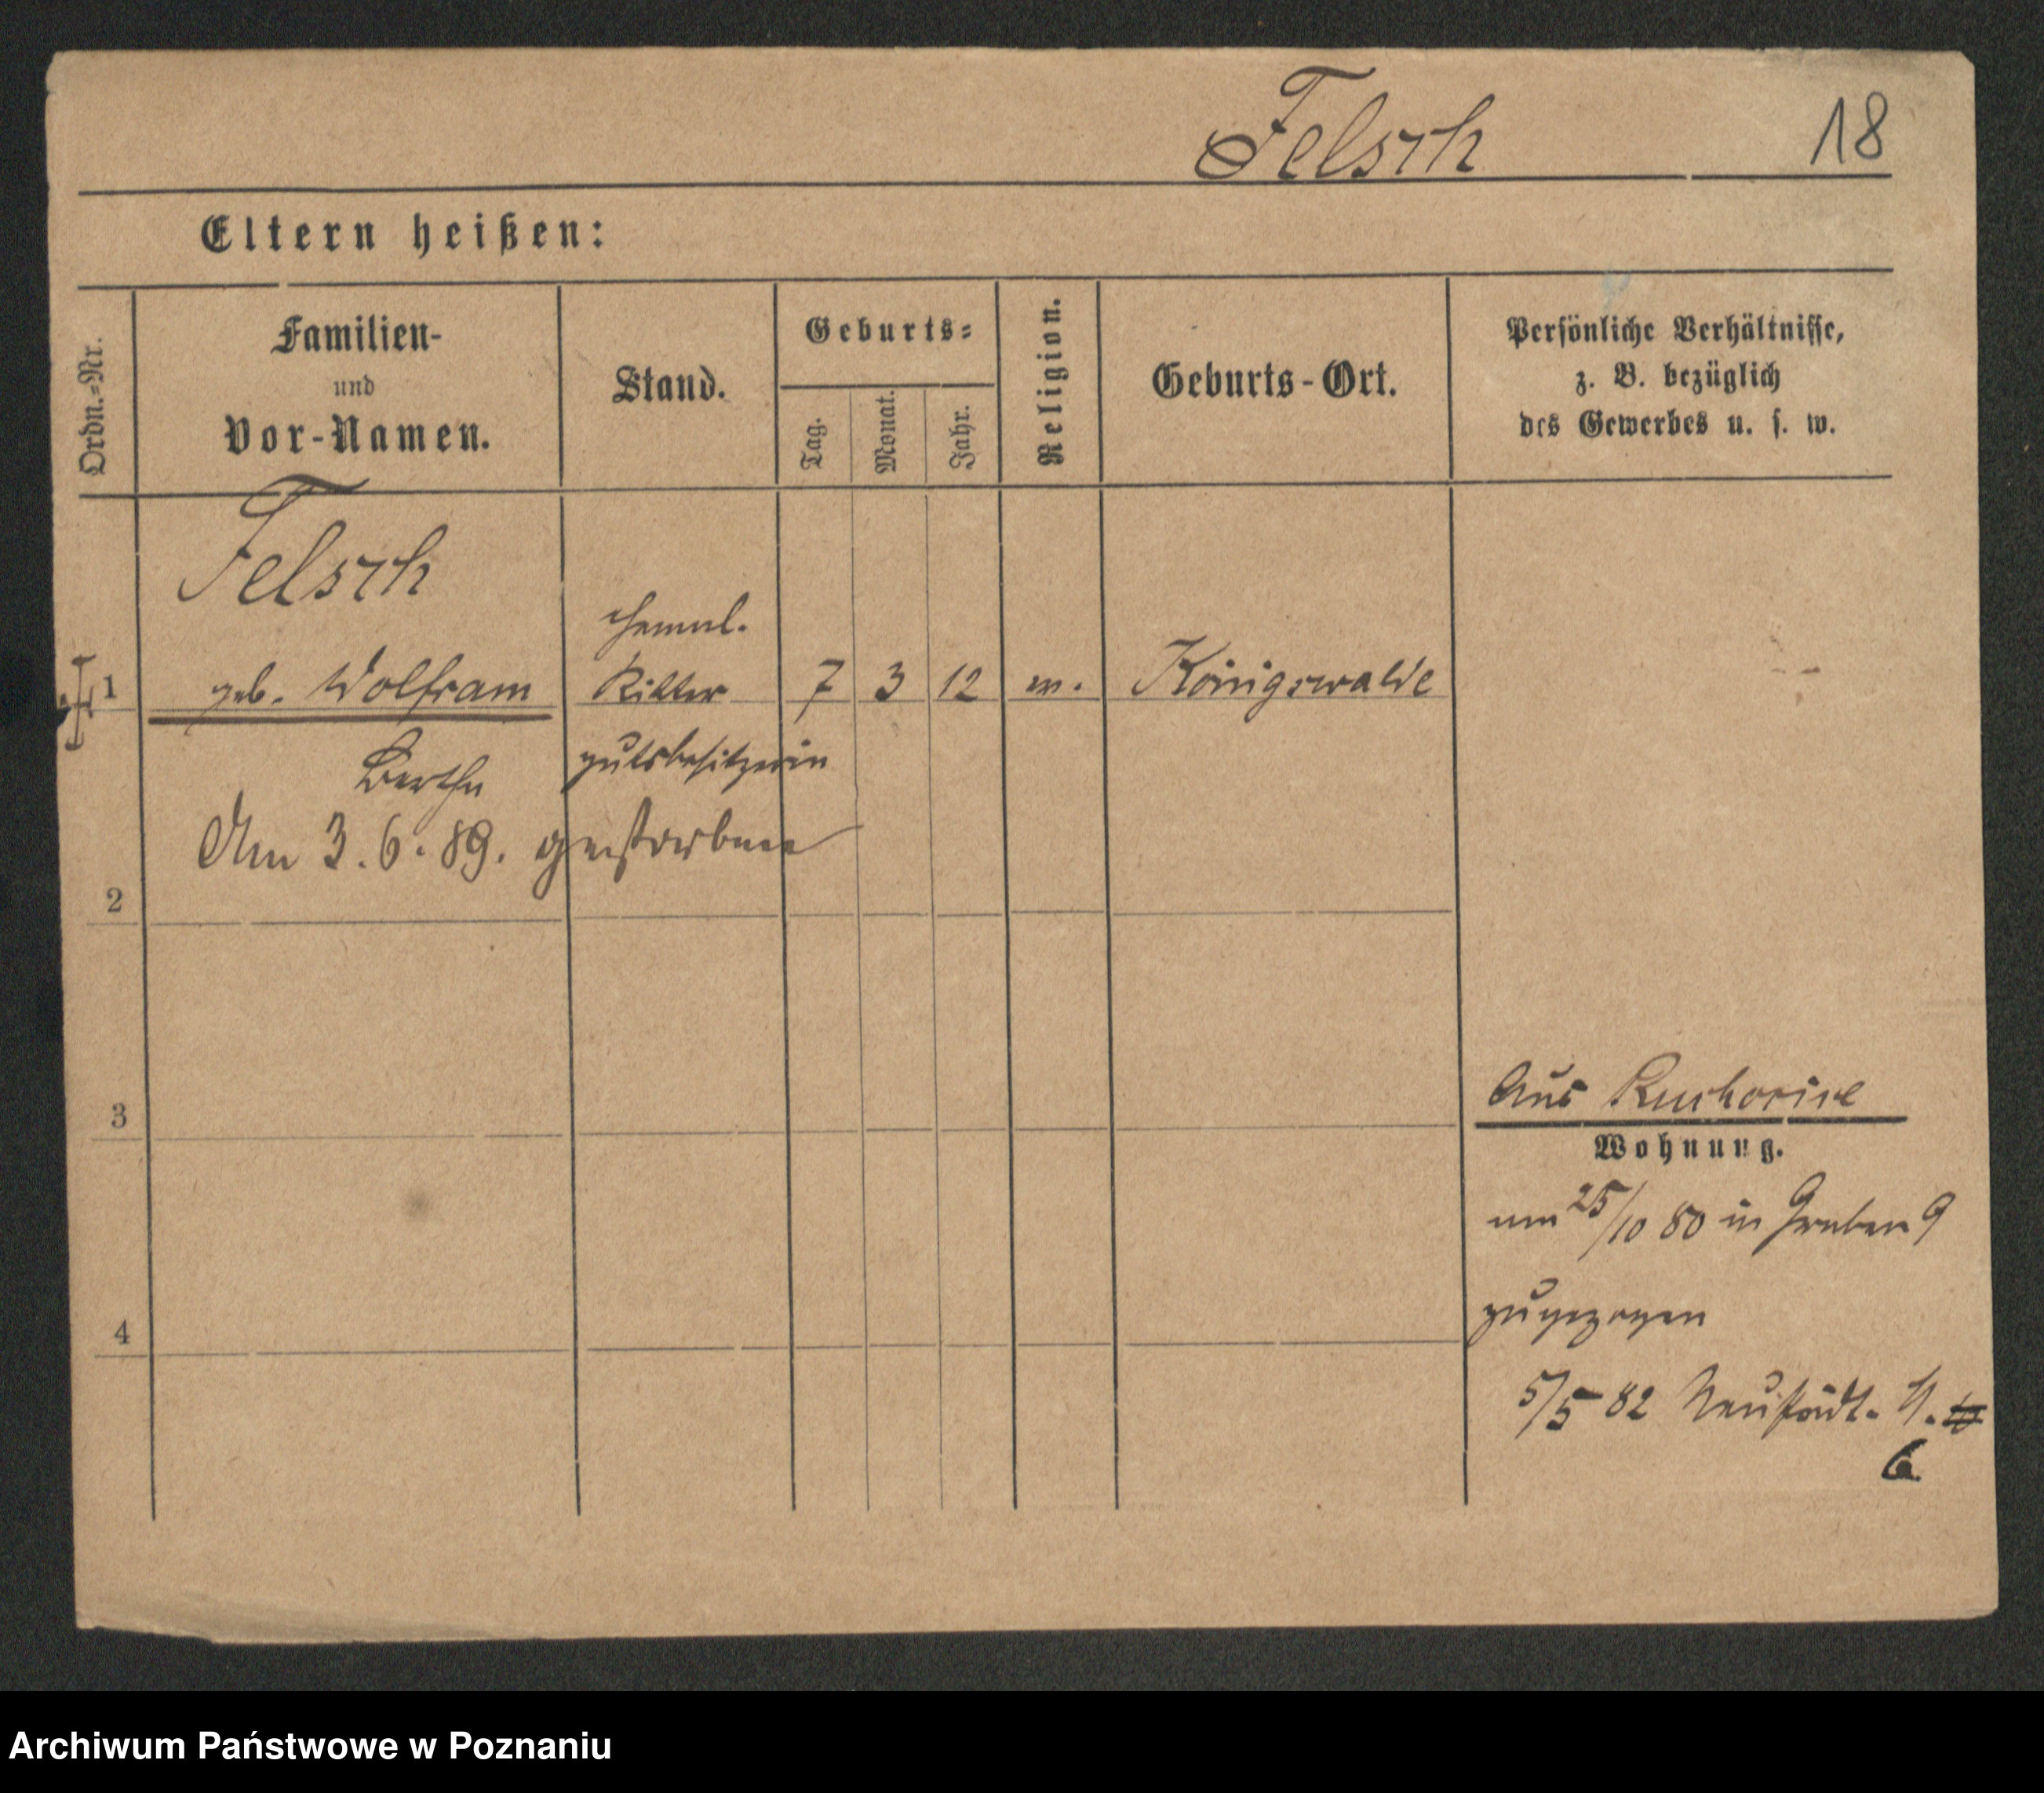 Felsch 18
Eltern heißen:
Ordn.=Nr.
Familien-
und
Vor-Namen.
Stand.
Geburts=
Tag.
Monat.
Jahr.
Religion.
Geburts-Ort.
Persönliche Verhältnisse,
z. B. bezüglich
des Gewerbes u. s. w.
Felsch
ehemal.
1 geb. Wolfram Ritter 7 3 12 Königswalde
Bertha gutsbesitzerin
Am 3.6.89. gestorben
2
3
Aus Ruchocice
Wohnung.
am 25/10 80 in Graben 9
zugezogen
4
5/5 82 Neustädt. M. 10
6
Archiwum Państwowe w Poznaniu